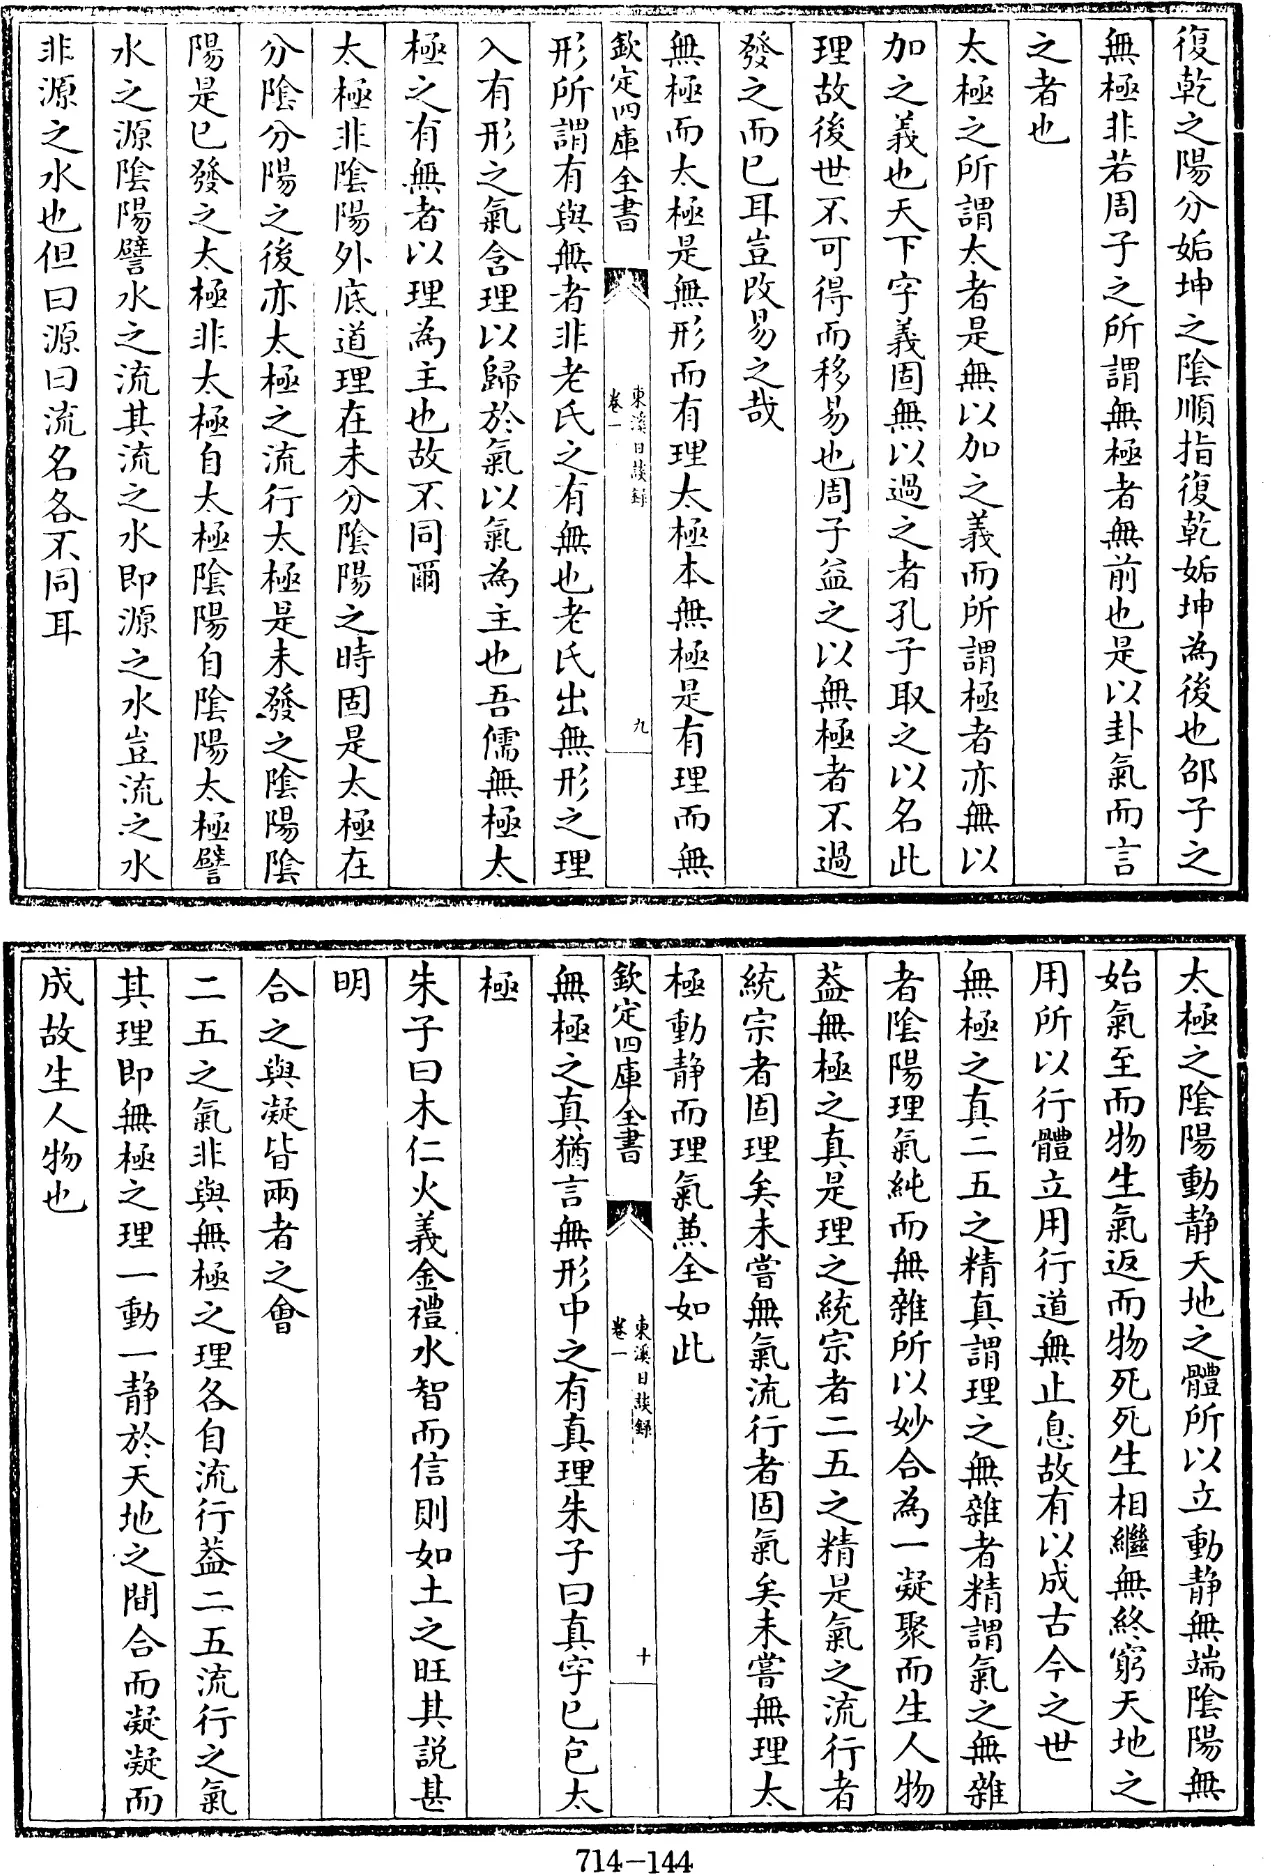 復乾之陽分姤坤之陰順指復乾姤坤為後也邵子之
無極非若周子之所謂無極者無前也是以卦氣而言
之者也
太極之所謂太者是無以加之義而所謂極者亦無以
加之義也天下字義固無以過之者孔子取之以名此
理故後世不可得而移易也周子益之以無極者不過
發之而已耳豈改易之哉
無極而太極是無形而有理太極本無極是有理而無
欽定四庫全書
東溪日談録
卷一
九
形所謂有與無者非老氏之有無也老氏出無形之理
入有形之氣含理以歸於氣以氣為主也吾儒無極太
極之有無者以理為主也故不同爾
太極非陰陽外底道理在未分陰陽之時固是太極在
分陰分陽之後亦太極之流行太極是未發之陰陽陰
陽是已發之太極非太極自太極陰陽自陰陽太極譬
水之源陰陽譬水之流其流之水即源之水豈流之水
非源之水也但曰源曰流名各不同耳
太極之陰陽動静天地之體所以立動静無端陰陽無
始氣至而物生氣返而物死死生相繼無終窮天地之
用所以行體立用行道無止息故有以成古今之世
無極之真二五之精真謂理之無雜者精謂氣之無雜
者陰陽理氣純而無雜所以妙合為一凝聚而生人物
葢無極之真是理之統宗者二五之精是氣之流行者
統宗者固理矣未嘗無氣流行者固氣矣未嘗無理太
極動静而理氣兼全如此
欽定四庫全書
東溪日談録
卷一
十
無極之真猶言無形中之有真理朱子曰真字已包太
極
朱子曰木仁火義金禮水智而信則如土之旺其説甚
明
合之與凝皆兩者之會
二五之氣非與無極之理各自流行葢二五流行之氣
其理即無極之理一動一静於天地之間合而凝凝而
成故生人物也
714-144